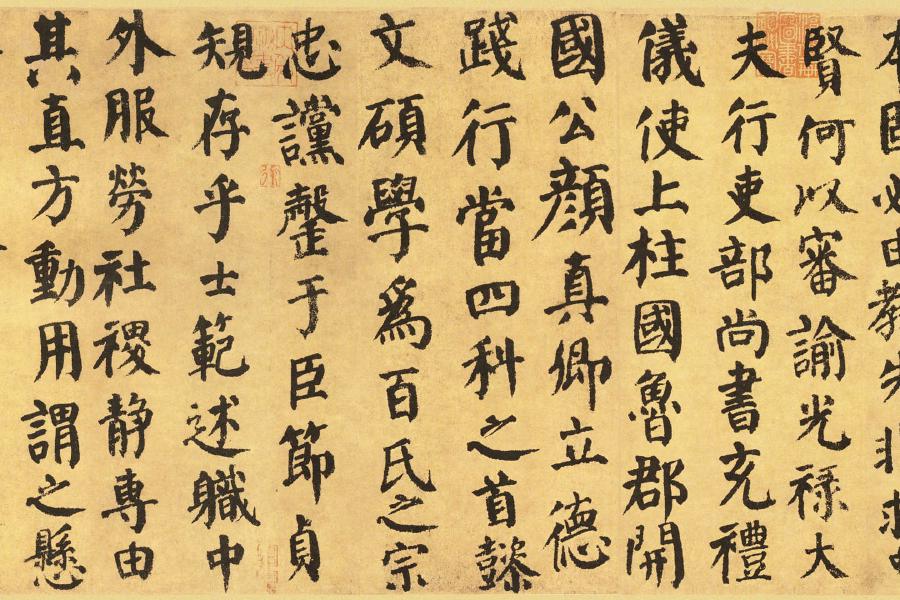 本固必由教先非求
賢何以審諭光祿大
夫行吏部尚書充禮
儀使上柱國魯郡開
國公顏真卿立德
踐行當四科之首懿
文碩學爲百氏之宗
忠讜罄于臣節貞
規存乎士範述職中
外服勞社稷静專由
其直方動用謂之懸